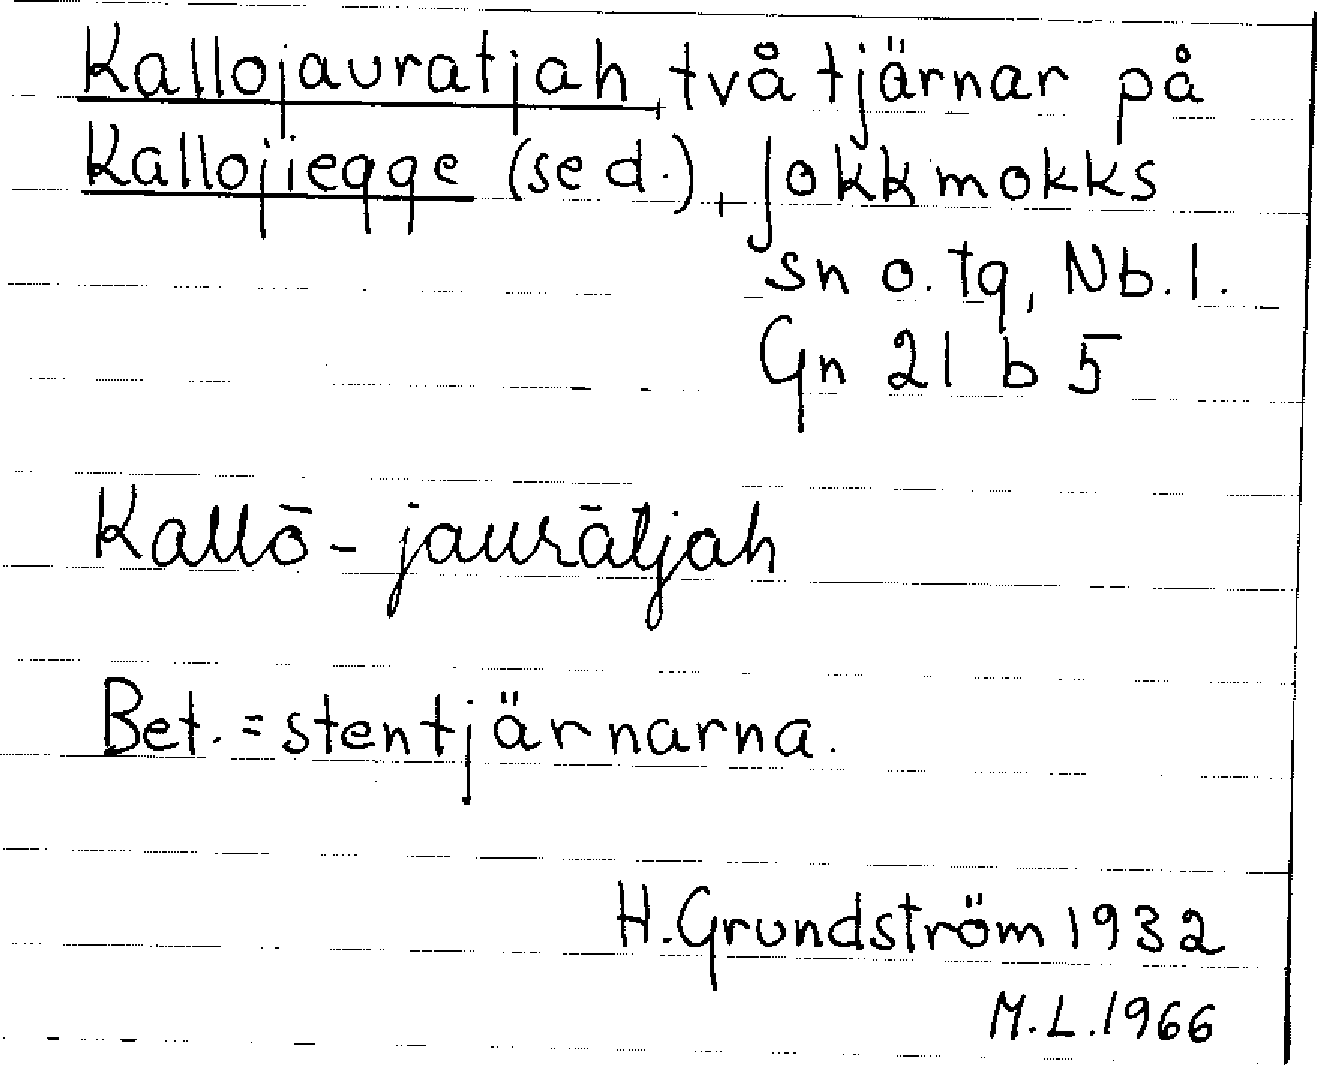 Kallojauratjah, två tjärnar på
Kallojieqqe (sed.), Jokkmokks
sn o. tg, Nb. l.
Gn 21 b 5
Kallō-jaurātjah
Bet. = stentjärnarna.
H. Grundström 1932
M.L. 1966